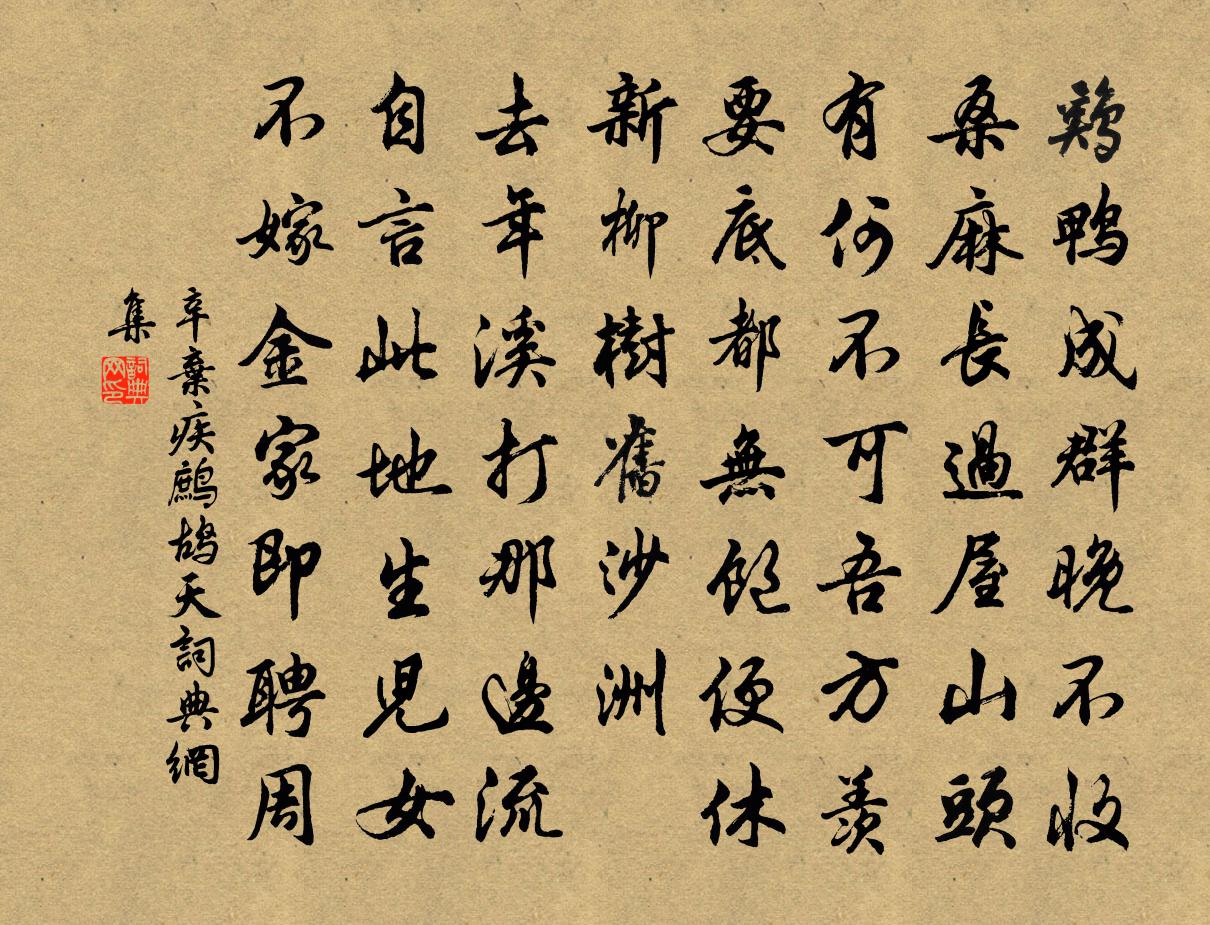 鷄鴨成群晚不收
桑麻長過屋山頭
有何不可吾方羨
要底都無飽便休
新柳樹舊沙洲
去年溪打那邊流
自言此地生兒女
不嫁金家即聘周
辛棄疾鷓鴣天詞典網
集
詞典
网印